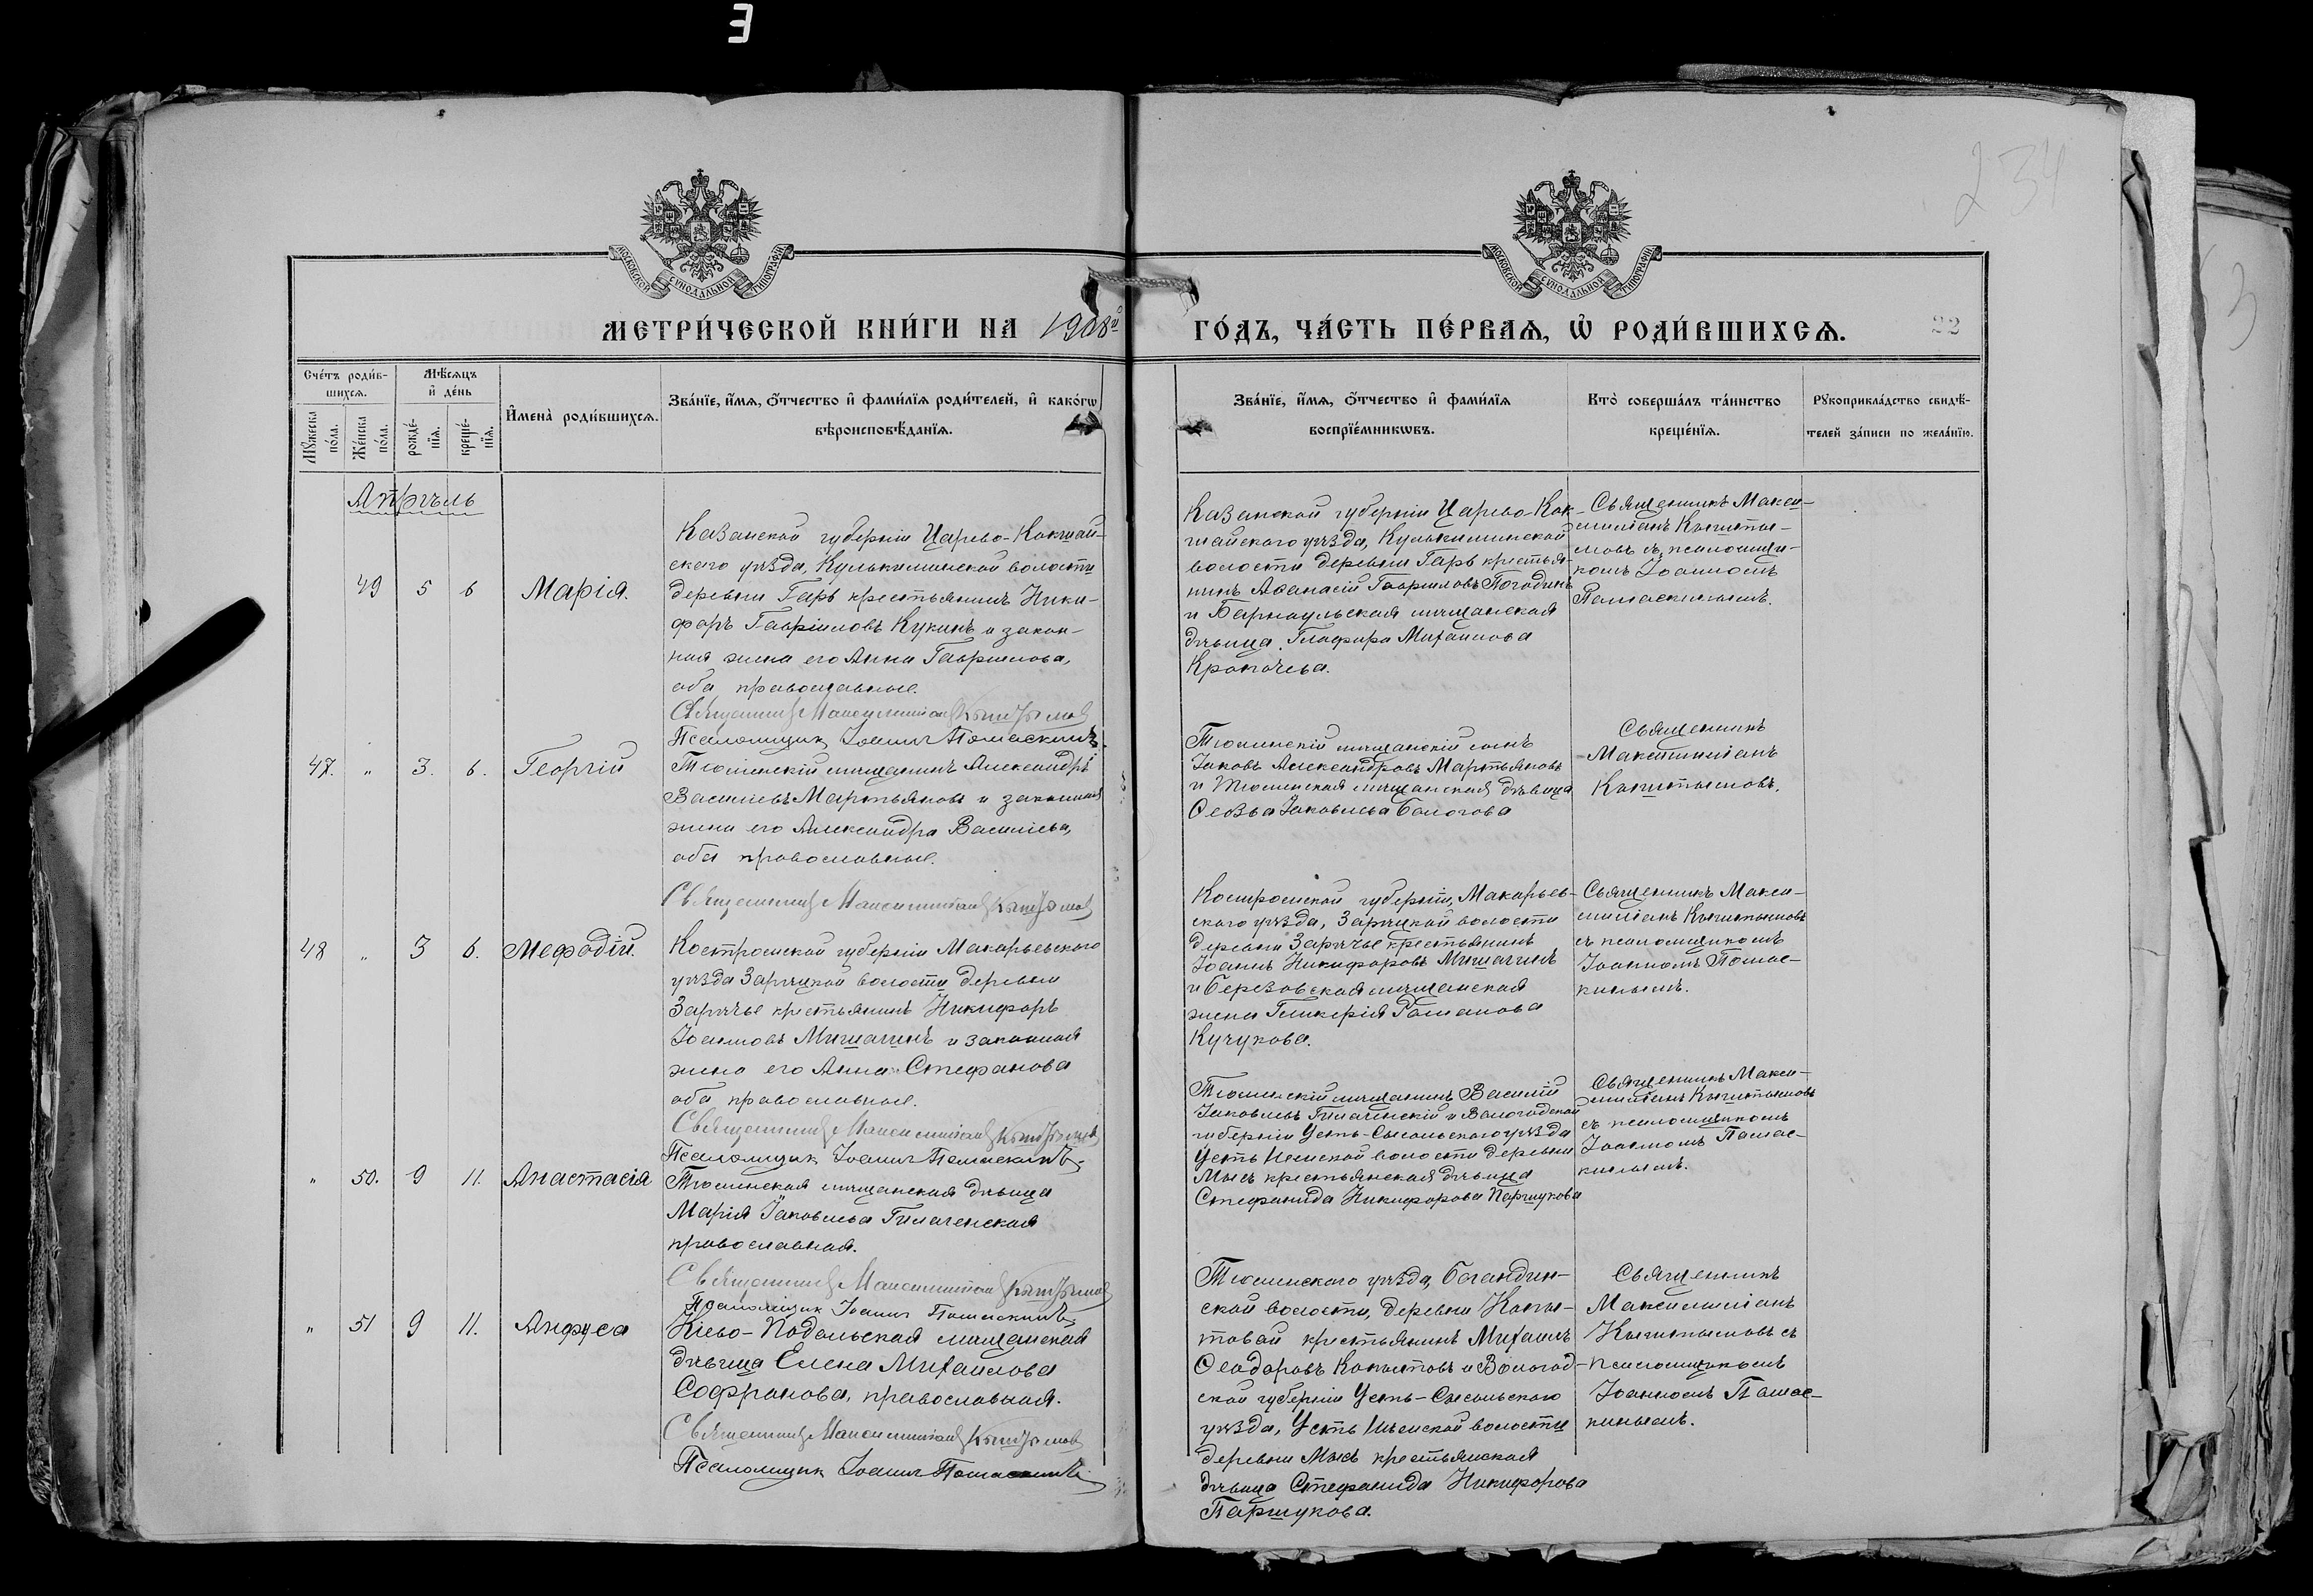 234
МОСКОВСКОЙ СѴНОДАЛЬНОЙ ТИПОГРАФІИ
МОСКОВСКОЙ СѴНОДАЛЬНОЙ ТИПОГРАФІИ
МЕТРИ́ЧЕСКОЙ КНИ́ГИ НА 1908й
ГО́ДЪ, ЧА́СТЬ ПЕ́РВАѦ, Ѡ҆ РОДИ́ВШИХСѦ.
22
Сче́тъ роди́в-
шихсѧ.
Мꙋжеска по́ла.
Же́нска по́ла.
Мѣ́сѧцъ
и҆ де́нь
рожде́-нїѧ.
креще́-нїѧ.
И҆мена̀ роди́вшихсѧ.
Зва́нїе, и҆́мѧ, ѻ҆́тчество и҆ фами́лїѧ роди́телей, и҆ како́гѡ
вѣроисповѣ́данїѧ.
Зва́нїе, и҆́мѧ, ѻ҆́тчество и҆ фами́лїѧ
воспрїе́мникѡвъ.
Кто̀ соверша́лъ та́инство
креще́нїѧ.
Рꙋкоприкла́дство свидѣ́-
телей за́писи по жела́нїю.
Апрѣль
49 5 6 Марія.
Казанской губерніи Царево-Кокшай-
скаго уѣзда, Кулькиминской волости
деревни Гарь крестьянинъ Ники-
форъ Гавріиловъ Кукинъ и закон-
ная жена его Анна Гавріилова,
оба православные.
Священникъ Максимиліанъ Кыштымовъ
Псаломщик Іоанн Помаскинъ.
Казанской губерніи Царево-Кок-
шайского уѣзда, Кулькиминской
волости деревни Гарь крестья-
нинъ Аѳанасій Гавриловъ Погодинъ
и Барнаульская мѣщанская
дѣвица Глафира Михаилова
Кропочева.
Священникъ Макси-
миліанъ Кышты-
мовъ съ псаломщи-
комъ Іоанномъ
Помаскинымъ.
47. „ 3. 6. Георгій
Тюменскій мѣщанинъ Александръ
Васильевъ Мартьяновъ и законная
жена его Александра Васильева,
оба православные.
Священникъ Максимиліанъ Кыштымовъ
Тюменскій мѣщанскій сынъ
Іаковъ Александровъ Мартьяновъ
и Тюменская мѣщанская дѣвица
Іаковлева Бологова
Священникъ
Максимиліанъ
Кыштымовъ.
48 „ 3 6. Меѳодій.
Костромской губерніи Макарьевского
уѣзда Зарѣцкой волости деревни
Зарѣчье крестьянинъ Никифоръ
Іоанновъ Мишагинъ и законная
жена его Анна Стефанова
оба православные.
Священникъ Максимиліанъ Кыштымовъ
Псаломщик Іоанн Помаскинъ.
Костромской губерніи, Макарьев-
ского уѣзда, Зарѣцкой волости
деревни Зарѣчье крестьянинъ
Іоаннъ Никифоровъ Мишагинъ
и Березовская мѣщанская
жена Гликерія Романова
Кучукова.
Священникъ Макси-
миліанъ Кыштымовъ
съ псаломщикомъ
Іоанномъ Помас-
кинымъ.
„ 50. 9 11. Анастасія
Тюменская мѣщанская дѣвица
Марія Іаковлева Гилаченская
православная.
Священникъ Максимиліанъ Кыштымовъ
Псаломщик Іоанн Помаскинъ
Тюменскій мѣщанинъ Василій
Іаковлевъ Гилаченскій и Вологодской
губерніи Усть-Сысольского уѣзда
Усть Немской волости деревни
Мысъ крестьянская дѣвица
Стефанида Никифорова Паршукова
Священникъ Макси-
миліанъ Кыштымовъ
съ псаломщикомъ
Іоанномъ Помас-
кинымъ.
„ 51 9 11. Анфуса
Кіево-Подольская мѣщанская
дѣвица Елена Михаилова
Софронова, православная.
Священникъ Максимиліанъ Кыштымовъ
Псаломщик Іоанн Помаскинъ
Тюменского уѣзда, Богандин-
ской волости, деревни Копы-
товой крестьянинъ Михаилъ
Ѳеодоровъ Копытовъ и Вологод-
ской губерніи Усть-Сысольского
уѣзда, Усть Немской волости
деревни Мысъ крестьянская
дѣвица Стефанида Никифорова
Паршукова.
Священникъ
Максимиліанъ
Кыштымовъ съ
псаломщикомъ
Іоанномъ Помас-
кинымъ.